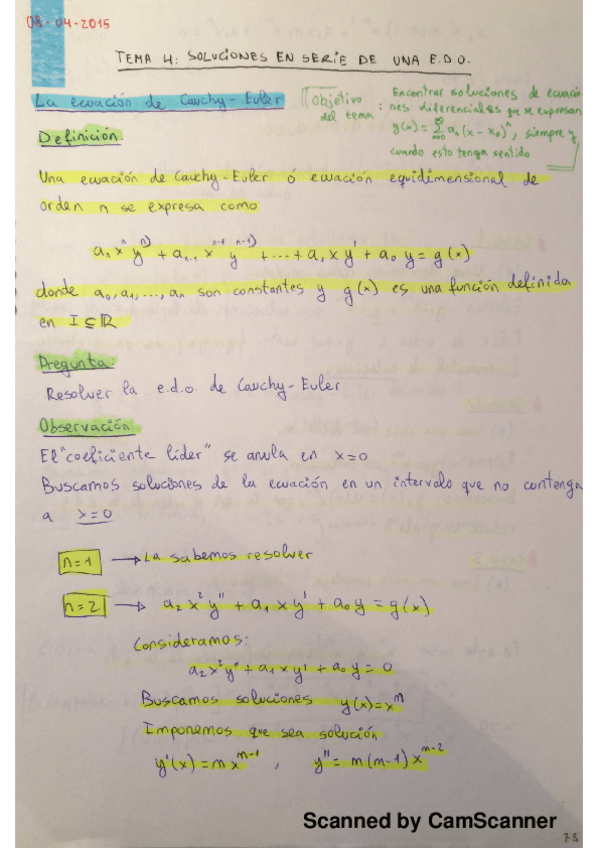 08-04-2015
TEMA 4: SOLUCIONES EN SERIE DE UNA E.D.O.
La ecuación de Cauchy-Euler
Objetivo del tema: Encontrar soluciones de ecuacio
nes diferenciales que se expresan
y(x) = ∑_{n=0}^{∞} a_n (x - x_0)^n, siempre y
cuando esto tenga sentido
Definición:
Una ecuación de Cauchy-Euler ó ecuación equidimensional de
orden n se expresa como
a_n x^n y^{n)} + a_{n-1} x^{n-1} y^{n-1)} + ... + a_1 x y' + a_0 y = g(x)
donde a_0, a_1, ..., a_n son constantes y g(x) es una función definida
en I ⊆ ℝ
Pregunta:
Resolver la e.d.o. de Cauchy-Euler
Observación
El "coeficiente líder" se anula en x=0
Buscamos soluciones de la ecuación en un intervalo que no contenga
a x=0
n=1 → La sabemos resolver
n=2 → a_2 x^2 y'' + a_1 x y' + a_0 y = g(x)
Consideramos:
a_2 x^2 y'' + a_1 x y' + a_0 y = 0
Buscamos soluciones y(x) = x^m
Imponemos que sea solución
y'(x) = m x^{m-1} , y'' = m(m-1) x^{m-2}
Scanned by CamScanner
73